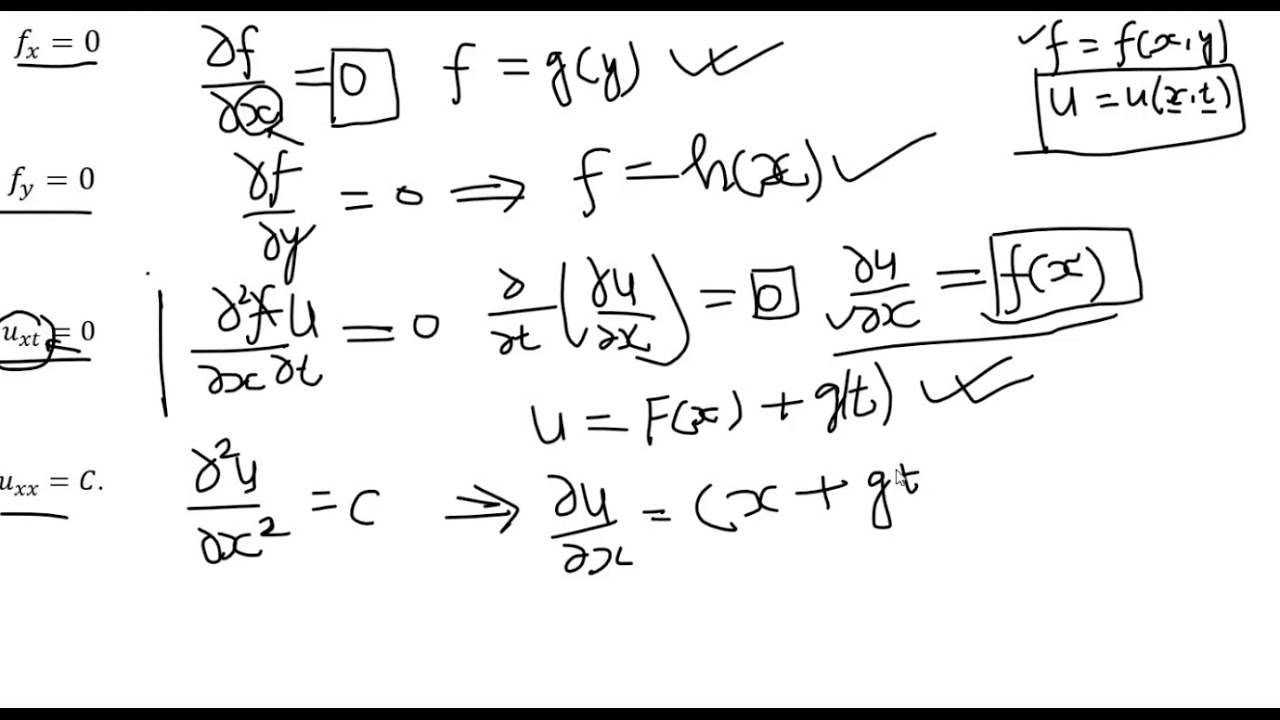 f_x = 0 ∂f/∂x = 0 f = g(y) f = f(x,y)
u = u(x,t)
f_y = 0 ∂f/∂y = 0 ⟹ f = h(x)
u_xt = 0 ∂²u/∂x∂t = 0 ∂/∂t(∂u/∂x) = 0 ∂u/∂x = f(x)
u = F(x) + g(t)
u_xx = C. ∂²u/∂x² = C ⟹ ∂u/∂x = Cx + gt